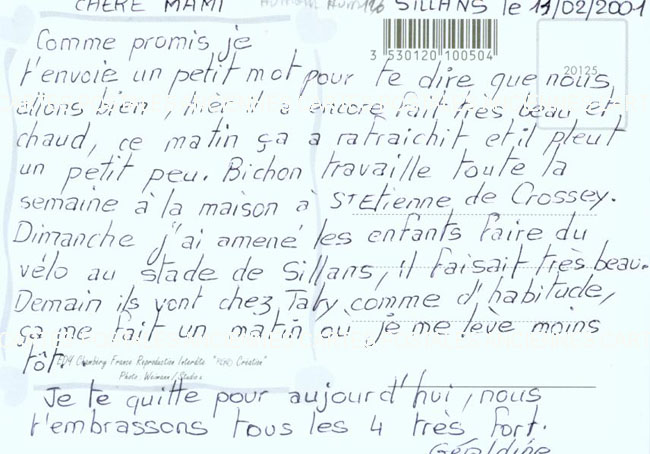 CHÈRE MAMI SILLANS le 13/02/2001
3 530120 100504
Comme promis je
t'envoie un petit mot pour te dire que nous
20125
allons bien, hièr il a encore fait très beau et
chaud, ce matin ça a rafraichit et il pleut
un petit peu. Bichon travaille toute la
semaine à la maison à St Etienne de Crossey.
Dimanche j'ai amené les enfants faire du
vélo au stade de Sillans, il faisait très beau.
Demain ils vont chez Taty comme d'habitude,
ça me fait un matin où je me lève moins
tôt.
EDY Chambéry France Reproduction Interdite "YERO Création"
Photo Weimann / Studio
Je te quitte pour aujourd'hui, nous
t'embrassons tous les 4 très fort.
Géraldine